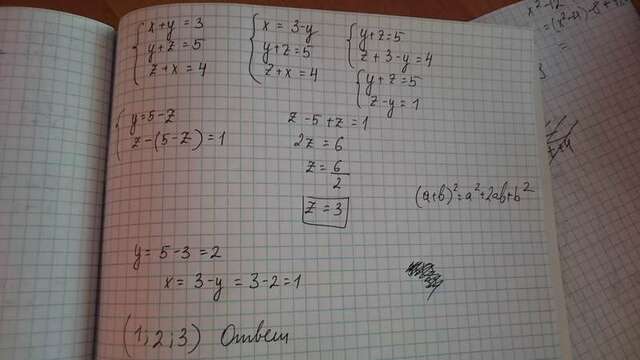 x+y=3
y+z=5
z+x=4
x=3-y
y+z=5
z+x=4
y+z=5
z+3-y=4
y+z=5
z-y=1
y=5-z
z-(5-z)=1
z-5+z=1
2z=6
z=6/2
z=3
(a+b)²=a²+2ab+b²
y=5-3=2
x=3-y=3-2=1
(1;2;3) Ответ